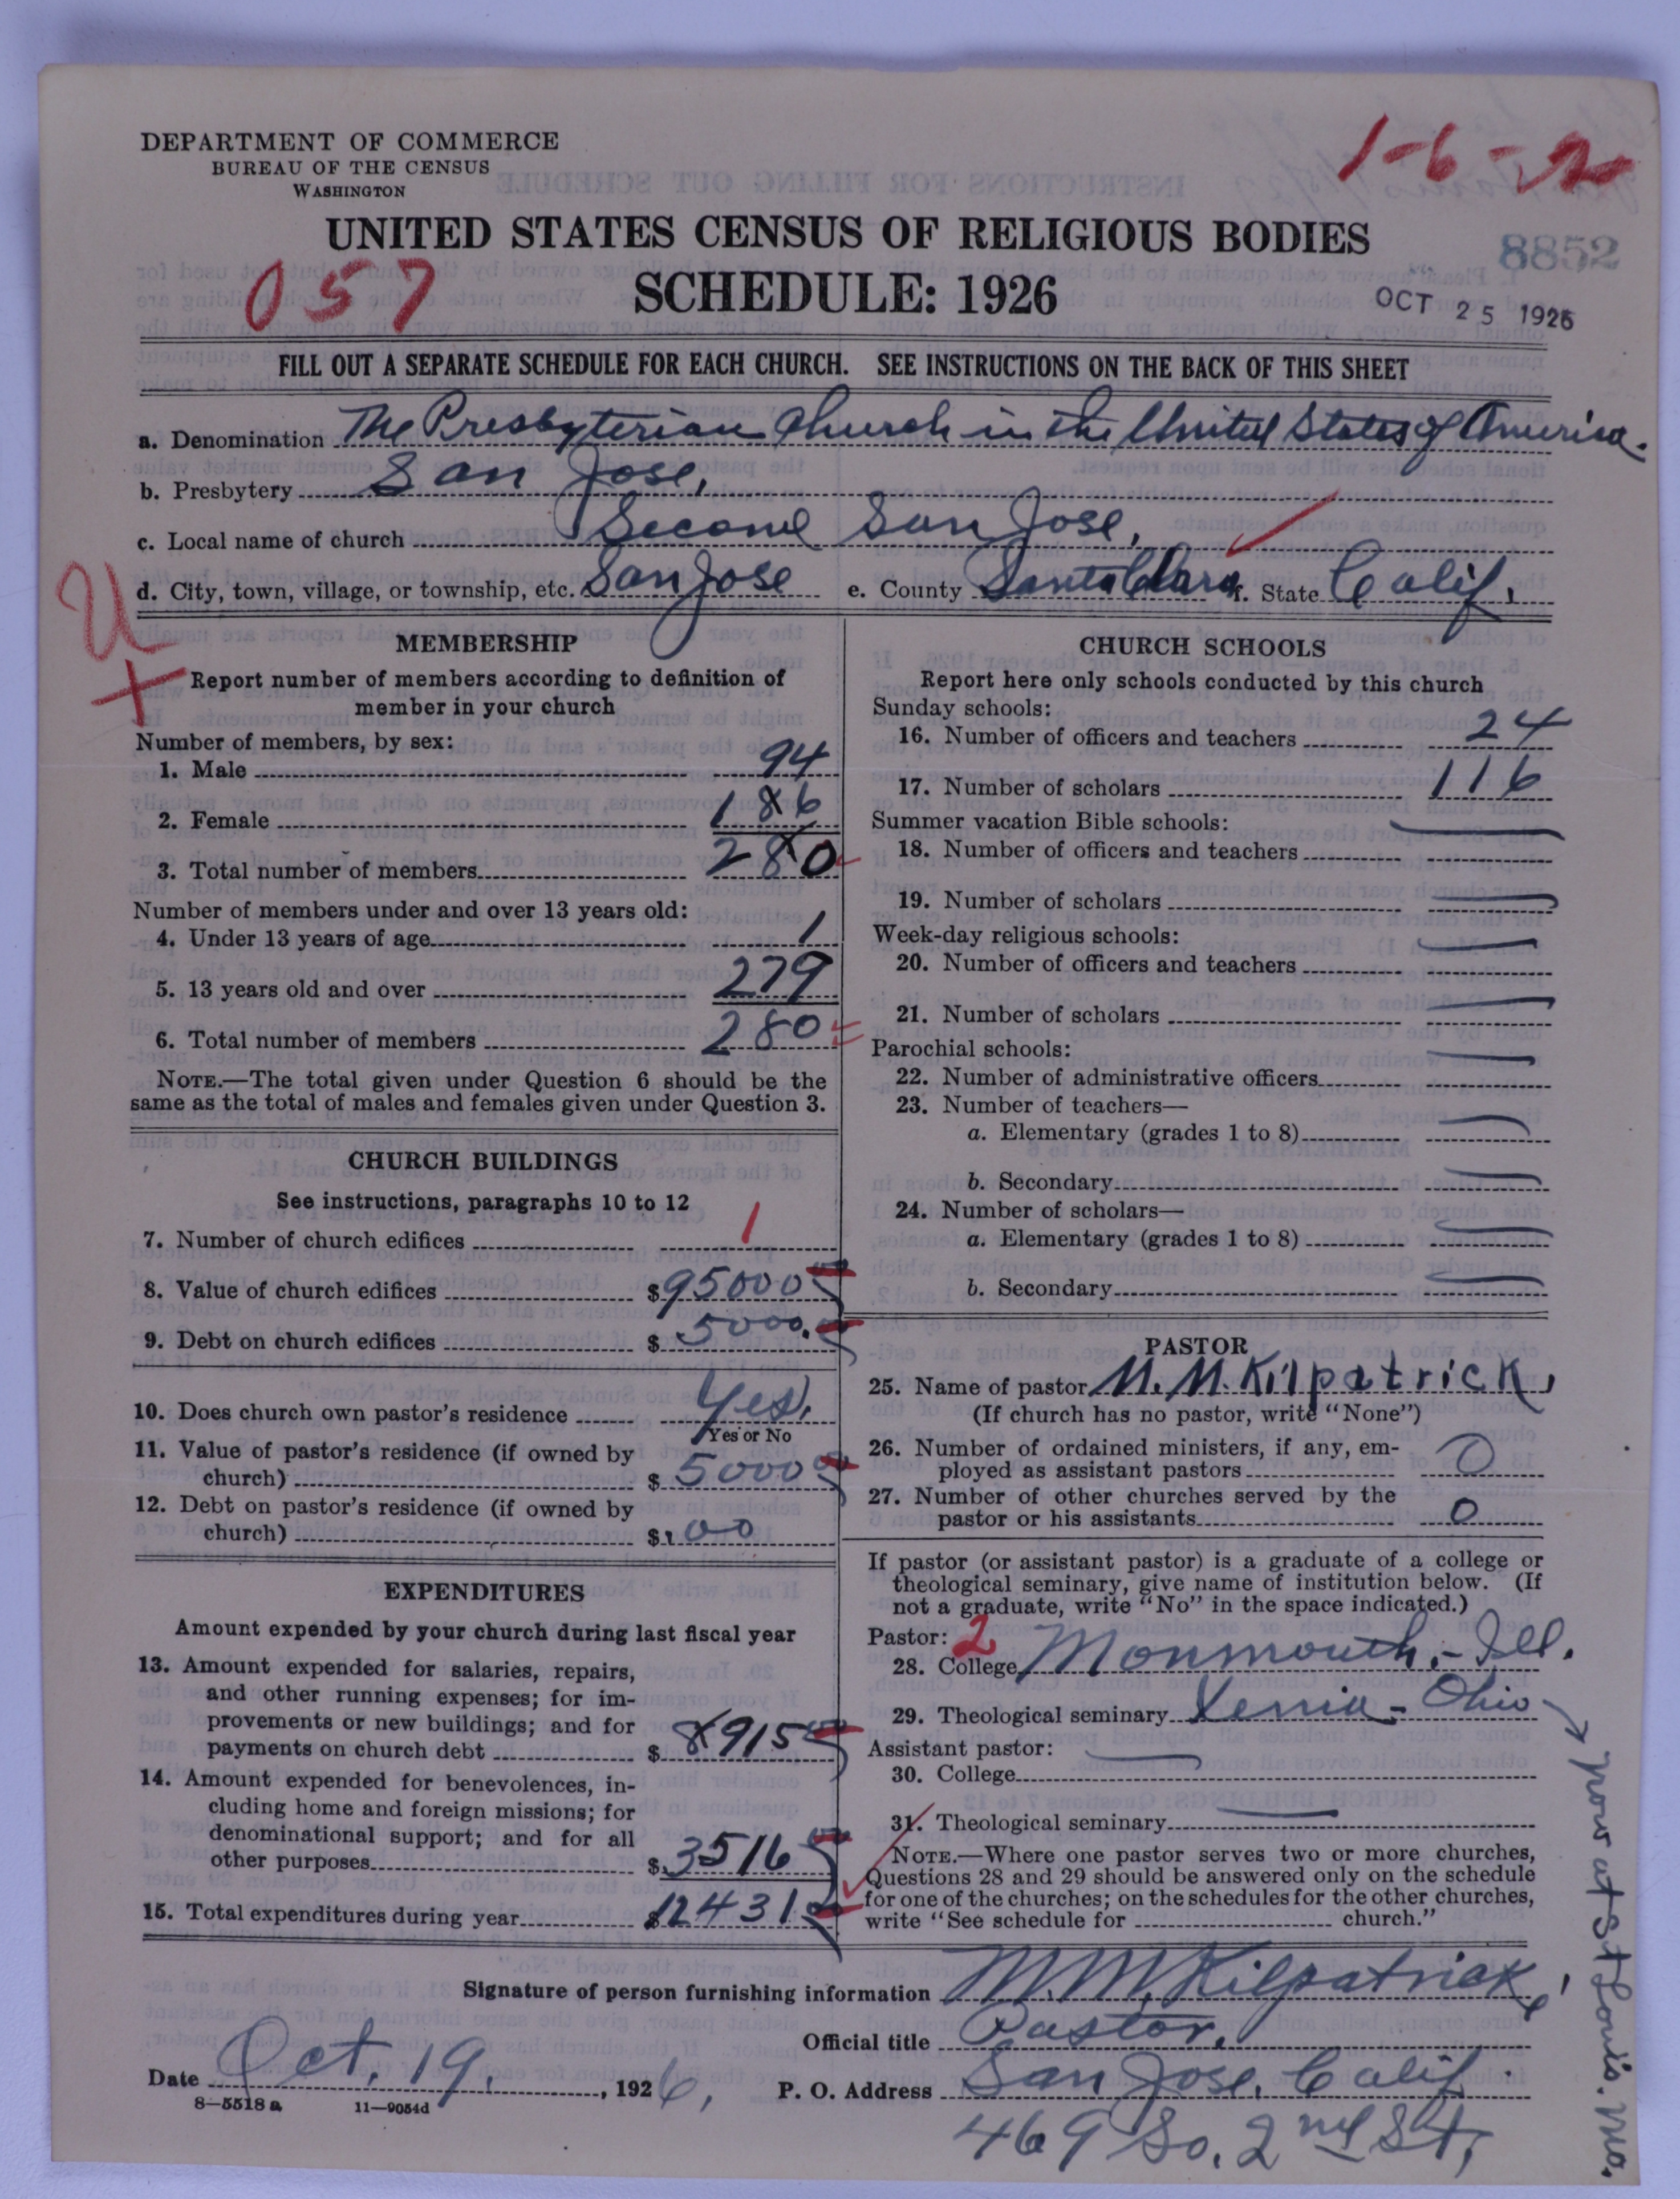 DEPARTMENT OF COMMERCE
BUREAU OF THE CENSUS
WASHINGTON
1-6-2
UNITED STATES CENSUS OF RELIGIOUS BODIES
8852
057
SCHEDULE: 1926
OCT 25 1926
FILL OUT A SEPARATE SCHEDULE FOR EACH CHURCH. SEE INSTRUCTIONS ON THE BACK OF THIS SHEET
a. Denomination The Presbyterian Church in the United States of America.
b. Presbytery San Jose,
c. Local name of church Second San Jose,
d. City, town, village, or township, etc. San Jose e. County Santa Clara f. State Calif,
U
+
MEMBERSHIP
Report number of members according to definition of
member in your church
Number of members, by sex:
1. Male 94
2. Female 186
3. Total number of members 280
Number of members under and over 13 years old:
4. Under 13 years of age 1
5. 13 years old and over 279
6. Total number of members 280
NOTE.—The total given under Question 6 should be the
same as the total of males and females given under Question 3.
CHURCH BUILDINGS
See instructions, paragraphs 10 to 12
7. Number of church edifices 1
8. Value of church edifices $95000
9. Debt on church edifices $ 5000.
10. Does church own pastor's residence Yes.
Yes or No
11. Value of pastor's residence (if owned by
church) $ 5000
12. Debt on pastor's residence (if owned by
church) $ 00
EXPENDITURES
Amount expended by your church during last fiscal year
13. Amount expended for salaries, repairs,
and other running expenses; for im-
provements or new buildings; and for
payments on church debt $ 8915
14. Amount expended for benevolences, in-
cluding home and foreign missions; for
denominational support; and for all
other purposes $ 3516
15. Total expenditures during year $12431
CHURCH SCHOOLS
Report here only schools conducted by this church
Sunday schools:
16. Number of officers and teachers 24
17. Number of scholars 116
Summer vacation Bible schools:
18. Number of officers and teachers
19. Number of scholars
Week-day religious schools:
20. Number of officers and teachers
21. Number of scholars
Parochial schools:
22. Number of administrative officers
23. Number of teachers—
a. Elementary (grades 1 to 8)
b. Secondary
24. Number of scholars—
a. Elementary (grades 1 to 8)
b. Secondary
PASTOR
25. Name of pastor M. M. Kilpatrick,
(If church has no pastor, write "None")
26. Number of ordained ministers, if any, em-
ployed as assistant pastors 0
27. Number of other churches served by the
pastor or his assistants 0
If pastor (or assistant pastor) is a graduate of a college or
theological seminary, give name of institution below. (If
not a graduate, write "No" in the space indicated.)
Pastor: 2
28. College Monmouth,- Ill.
29. Theological seminary Xenia - Ohio
Assistant pastor:
30. College
31. Theological seminary
NOTE.—Where one pastor serves two or more churches,
Questions 28 and 29 should be answered only on the schedule
for one of the churches; on the schedules for the other churches,
write "See schedule for church."
now at St Louis. Mo.
Signature of person furnishing information M. M. Kilpatrick,
Official title Pastor.
Date Oct. 19. , 1926, P. O. Address San Jose, Calif.
8—5518a 11—9054d
469 So. 2nd St,